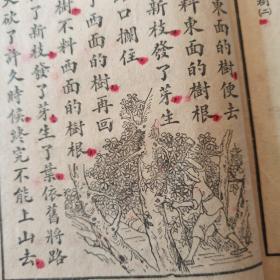 東面的樹使去
料東面的樹根
新枝發了芽生
口攔住
了西面的樹再回
樹不料西面的樹根
了新枝發了芽生了葉依舊將路
砍了許久時候終究不能上山去